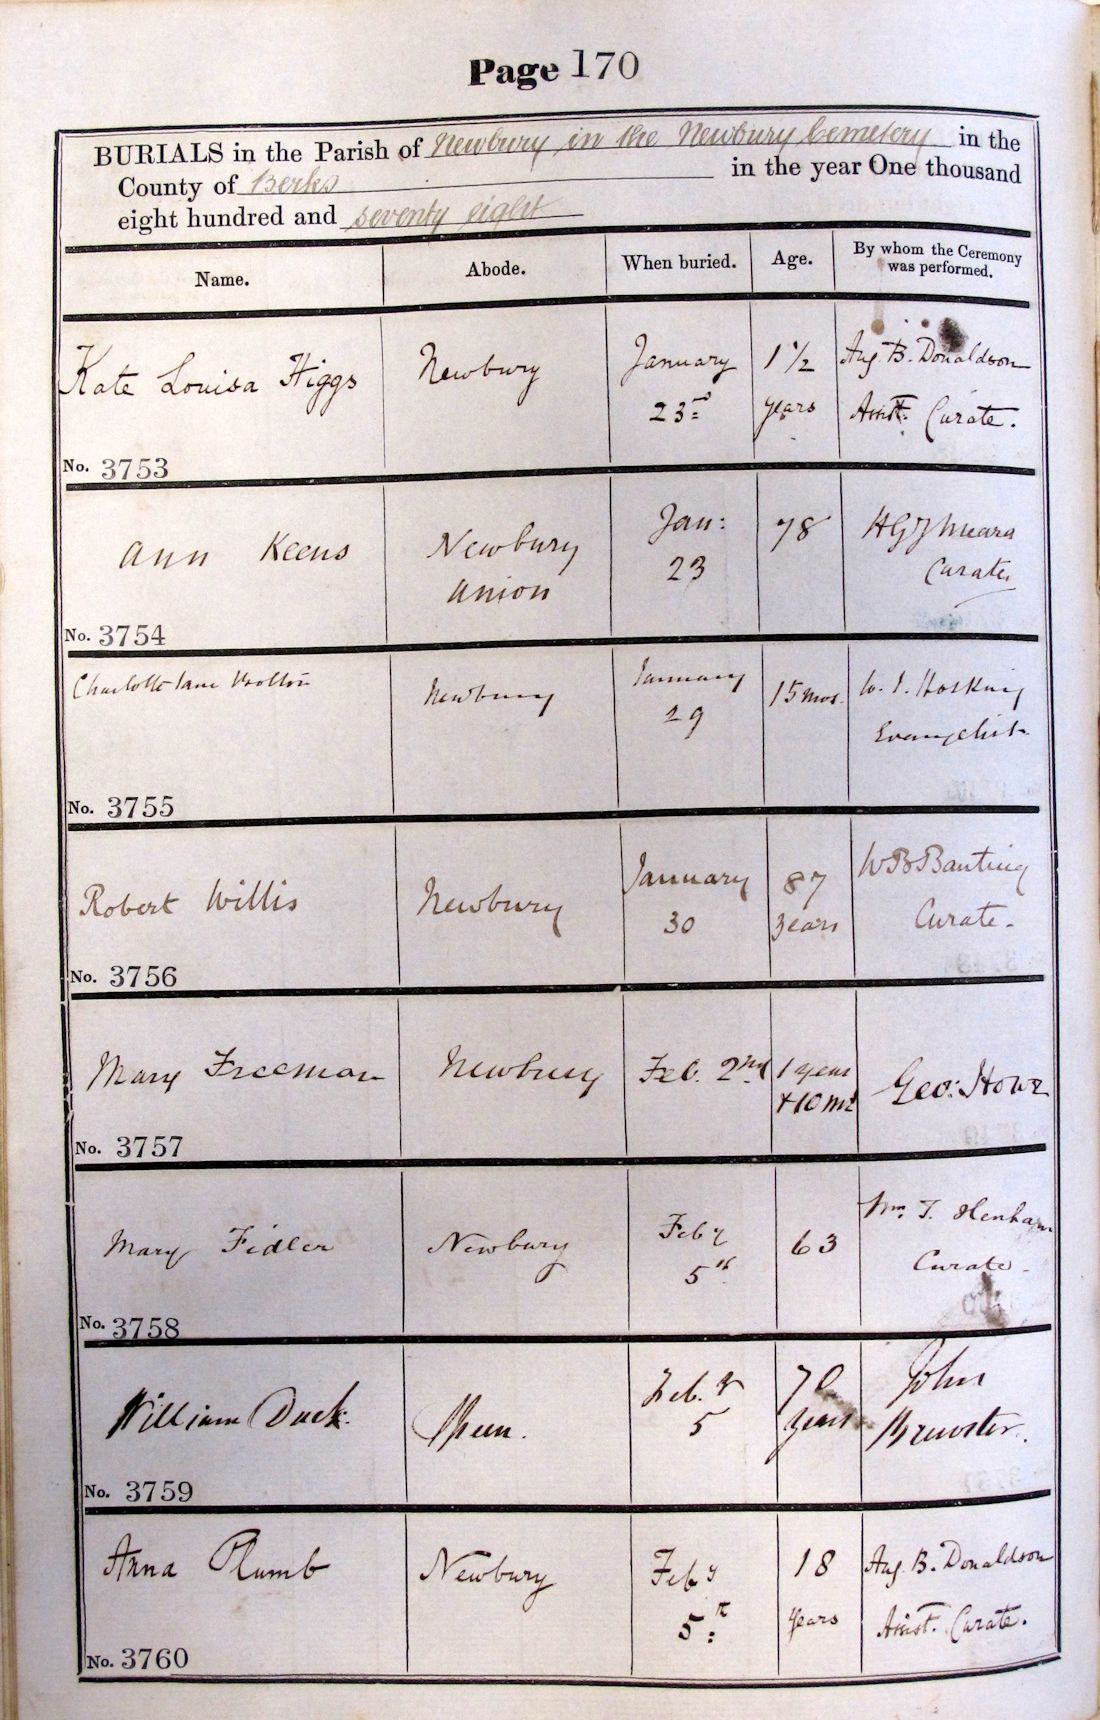 Page 170
BURIALS in the Parish of Newbury in the Newbury Cemetery in the
County of Berks in the year One thousand
eight hundred and seventy eight
Name. Abode. When buried. Age. By whom the Ceremony
was performed.
Kate Louisa Higgs Newbury January 1 1/2 Aug. B. Donaldson
23rd years Assist. Curate.
No. 3753
Ann Keens Newbury Jan: 78 Meara
Union 23 Curate
No. 3754
Charlotte Jane Newbury January 15 mos. W. J. Hosking
29 Evangelist
No. 3755
Robert Willis Newbury January 87 W B Banting
30 years Curate.
No. 3756
Mary Freeman Newbury Feb. 2nd 1 year Geo: Howe
+ 10 ms
No. 3757
Mary Fidler Newbury Feby 63 Wm. T. Henham
5th Curate.
No. 3758
William Duck. Speen. Feb.y 70 John
5 years Brewster.
No. 3759
Anna Plumb Newbury Feby 18 Aug. B. Donaldson
5th years Assist. Curate.
No. 3760